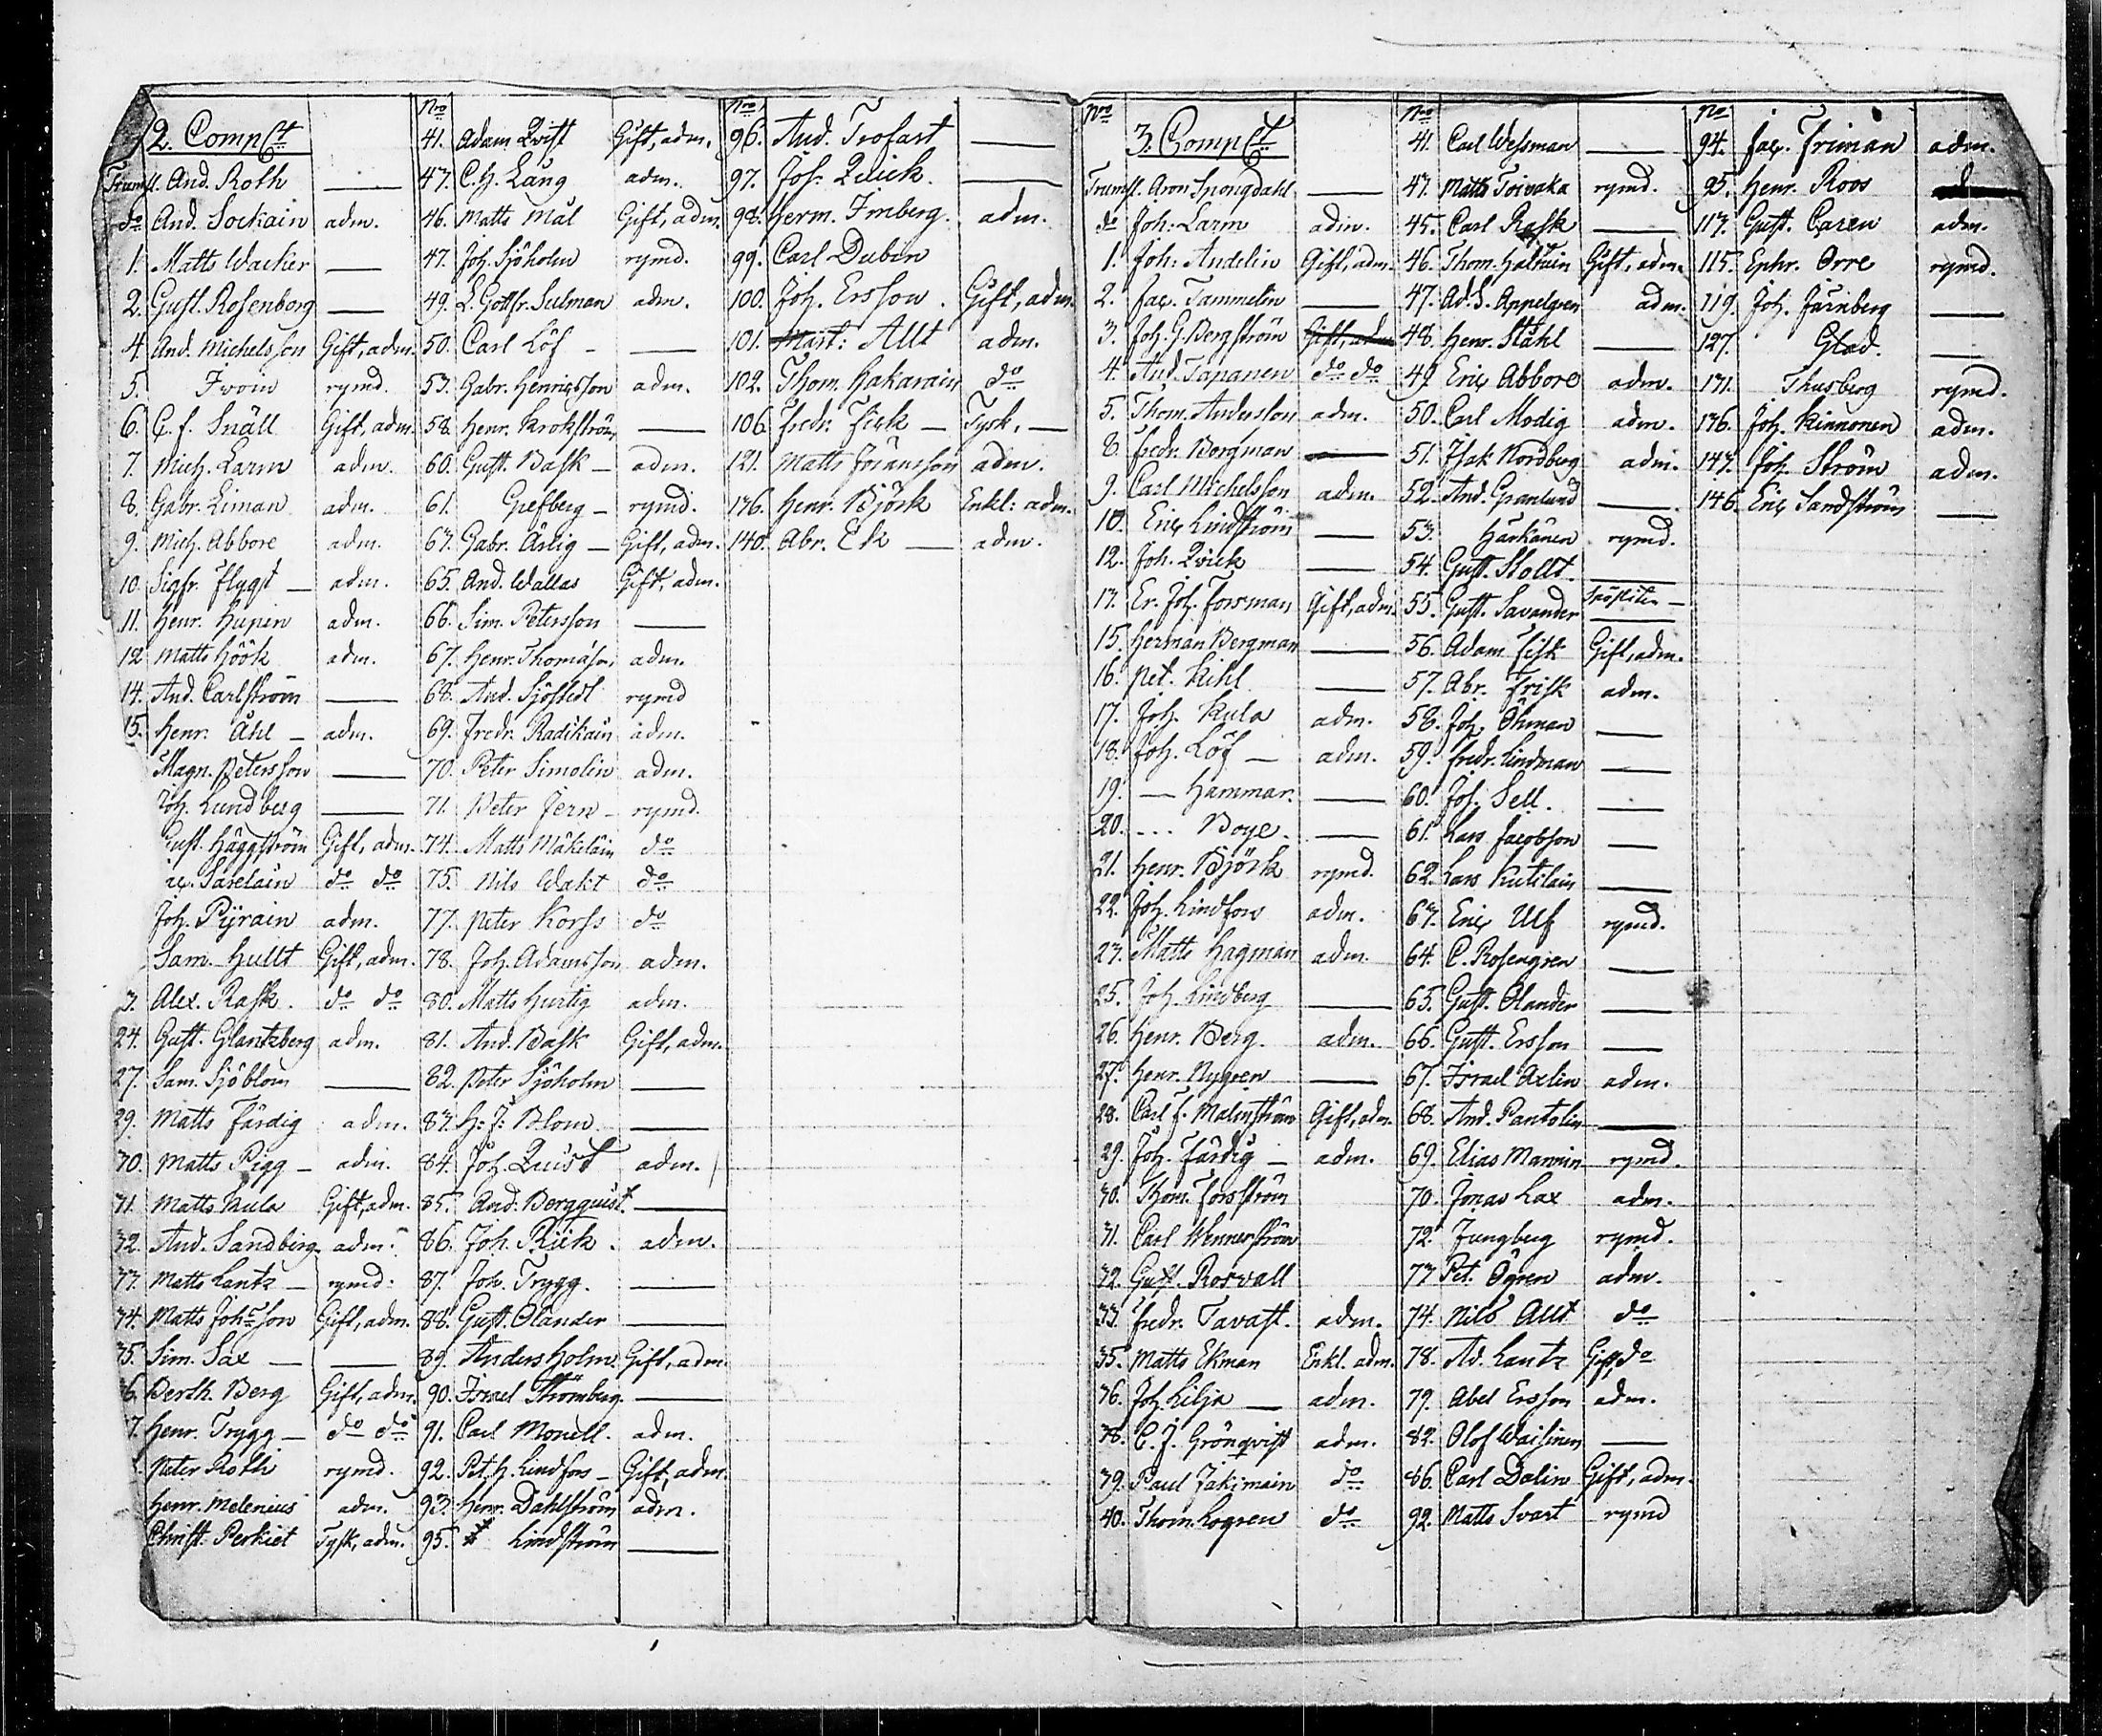 2. Comp.
Trumsl. And. Roth ___
do And. Sockain adm.
1. Matts Wacker ___
2. Gust. Rosenborg ___
4. And. Michelsson Gift, adm.
5. From rymd.
6. C. F. Snäll Gift, adm.
7. Mich. Larm adm.
8. Gabr. Liman adm.
9. Mich. Abbore adm.
10. Sigfr. Flygt — adm.
11. Henr. Hupin adm.
12 Matts Höök adm.
14. And. Carlström ___
15. Henr. Åhl — adm.
Magn. Petersson ___
Joh. Lundberg ___
Gust. Häggström Gift, adm.
Sarelain do do
Joh. Pyrain adm.
Sam. Hullt Gift, adm.
3. Alex. Rask. do do
24. Gust. Glantzberg adm.
27. Sam. Sjöblom ___
29. Matts Färdig adm.
30. Matts Pigg — adm.
31. Matts Kula Gift, adm.
32. And. Sandberg adm.
33. Matts Lantz — rymd.
34. Matts Joh:sson Gift, adm.
35. Sim. Sax — ___
6. Berth. Berg Gift, adm.
7. Henr. Trygg — do do
Peter Roth rymd.
Henr. Melenius adm.
Christ. Perkiet Tysk, adm.
Nro
41. Adam Qvist Gift, adm.
43. C. H. Lång adm.
46. Matts Mål Gift, adm.
47. Joh. Sjöholm rymd.
49. L. Gottfr. Sulman adm.
50. Carl Löf - ___
53. Gabr. Henricsson adm.
58. Henr. Krokström ___
60. Gust. Bask — adm.
61. Grefberg — rymd.
63. Gabr. Änig — Gift, adm.
65. And. Wallas Gift, adm.
66. Sim. Petersson ___
67. Henr. Thomasson adm.
68. And. Sjöstedt rymd
69. Fredr. Radikain adm.
70. Peter Simolin adm.
71. Peter Jern - rymd.
74. Matts Mäkeläin do
75. Nils Wakt do
77. Peter Korss do
78. Joh. Adamsson adm.
80. Matts Hurtig adm.
81. And. Bask Gift, adm.
82. Peter Sjöholm ___
83. H: J: Blom. ___
84. Joh. Quist adm.
85. And. Bergquist. ___
86. Joh. Rück. adm.
87. Joh. Trygg. ___
88. Gust. Olander ___
89. Anders Holm. Gift, adm.
90. Israel Strömberg. ___
91. Carl Monell. adm.
92. Pet. H. Lindfors — Gift, adm.
93. Henr. Dahlström adm.
95. Lindström ___
Nro
96. And. Trofast ___
97. Joh. Quick. ___
98. Herm. Imberg. adm.
99. Carl Dubin
100. Joh. Ersson. Gift, adm.
101. Mart: Allt adm.
102. Thom. Hakarain do
106. Fredr. Fick — Tysk, —
121. Matts Jöransson adm.
136. Henr. Björk Enkl: adm.
140. Abr. Ek — adm.
Nro
3. Comp.
Trumsl. Aron Spongdahl ___
do Joh: Larm adm.
1. Joh: Andelin Gift, adm.
2. Jac. Tammelin ___
3. Joh. G. Bergström Gift, adm
4. And. Tapanen do do
5. Thom. Andersson adm.
8. Fredr. Borgman ___
9. Carl Michelsson adm.
10. Eric Lindström ___
12. Joh. Qvick ___
13. Er. Joh. Forsman Gift, adm.
15. Herman Bergman ___
16. Pet. Kihl ___
17. Joh. Kula adm.
18. Joh. Löf — adm.
19. — Hammar. ___
20. ... Boye. ___
21. Henr. Björk rymd.
22. Joh. Lindfors adm.
23. Matts Hagman adm.
25. Joh. Lindberg ___
26. Henr. Berg. adm.
27. Henr. Nygren ___
28. Carl F. Malmström Gift, adm.
29. Joh. Färdig — adm.
30. Thom. Forsström
31. Carl Wennerström
32. Gust. Rosvall
33. Fredr. Tavast. adm.
35. Matts Ekman Enkl. adm.
36. Joh. Lilja — adm.
38. C. J. Grönqvist adm.
39. Paul Jakimain do
40. Thom. Logren do
Nro
41. Carl Wessman ___
43. Matts Toivaka rymd.
45. Carl Rask ___
46. Thom. Halttuin Gift, adm.
47. Ad. S. Appelgren adm.
48. Henr. Ståhl ___
49 Eric Abbore adm.
50. Carl Modig adm.
51. Isak Nordberg adm.
52. And. Granlund ___
53. Härkänen rymd.
54. Gust. Stollt ___
55. Gust. Savander
56. Adam Fisk Gift, adm.
57. Abr. Frisk adm.
58. Joh. Öhman ___
59. Fredr. Lindman ___
60. Joh. Sell. ___
61. Lars Jacobson ___
62. Lars Kutilain ___
63. Eric Ulf rymd.
64. C. Rosengren ___
65. Gust. Olander ___
66. Gust. Ersson ___
67. Israel Axlin adm.
68. And. Pantolin ___
69. Elias Mannin rymd.
70. Jonas Lax adm.
72. Jungberg rymd.
73 Pet. Ögren adm.
74. Nils Allt do
78. Ad. Lantz Gift do
79. Abel Ersson adm.
82. Olof Waisinen ___
86. Carl Dalin Gift, adm.
92. Matts Svart rymd
No
94. Jac. Friman adm.
95. Henr. Roos
113. Gust. Caren adm.
115. Ephr. Orre rymd.
119. Joh. Järnberg ___
127. Glad. ___
131. Thusberg rymd.
136. Joh. Kinnonen adm.
143. Joh. Ström adm.
146. Eric Sandström ___